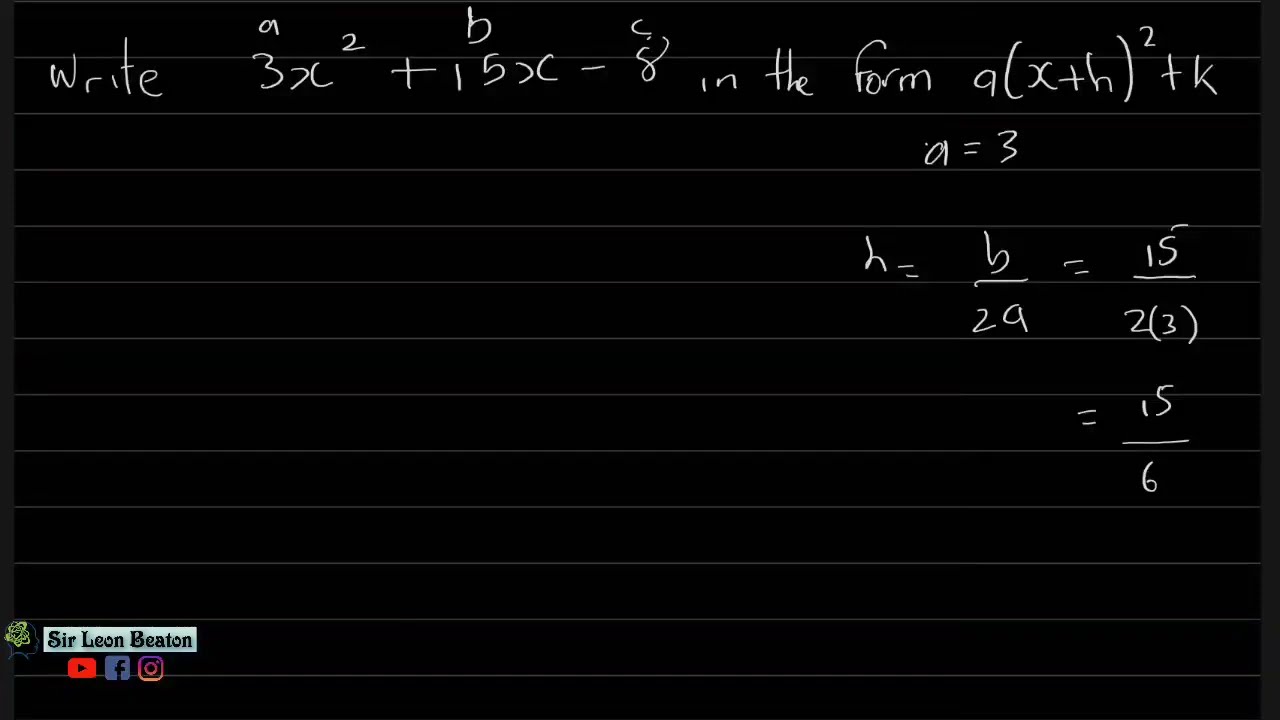 a b c
Write 3x² + 15x - 8 in the form a(x+h)² + k
a = 3
h = b/2a = 15/2(3)
= 15/6
Sir Leon Beaton